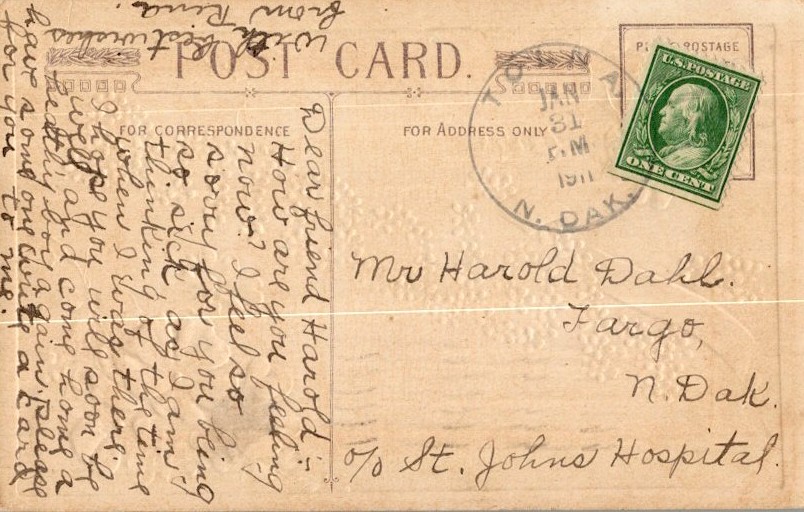 POST CARD.
FOR CORRESPONDENCE
FOR ADDRESS ONLY
POSTAGE
TOWNA
JAN
31
M
1911
N. DAK.
U.S. POSTAGE
ONE CENT
Dear friend Harold :-
How are you feeling
now? I feel so
sorry for you being
so sick as I am
thinking of the time
when I was there.
I hope you will soon be
well and come home a
healthy boy again. please
have some one write a card
for you to me.
With best wishes
from Rena.
Mr Harold Dahl.
Fargo,
N. Dak.
c/o St. Johns Hospital.